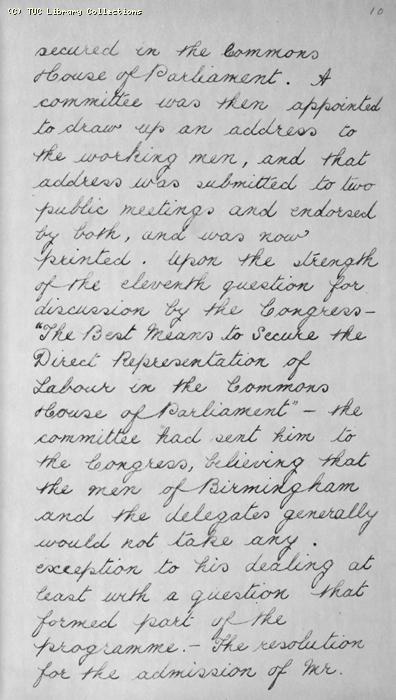 (C) TUC Library Collections
10
secured in the Commons
House of Parliament. A
committee was then appointed
to draw up an address to
the working men, and that
address was submitted to two
public meetings and endorsed
by both, and was now
printed. Upon the strength
of the eleventh question for
discussion by the Congress—
"The Best Means to Secure the
Direct Representation of
Labour in the Commons
House of Parliament" — the
committee had sent him to
the Congress, believing that
the men of Birmingham
and the delegates generally
would not take any.
exception to his dealing at
least with a question that
formed part of the
programme. — The resolution
for the admission of Mr.